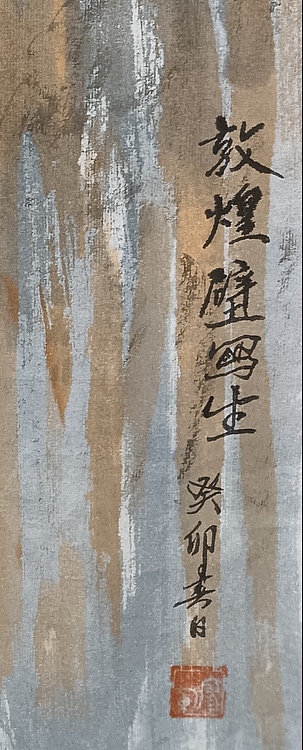 敦煌壁写生
癸卯春日